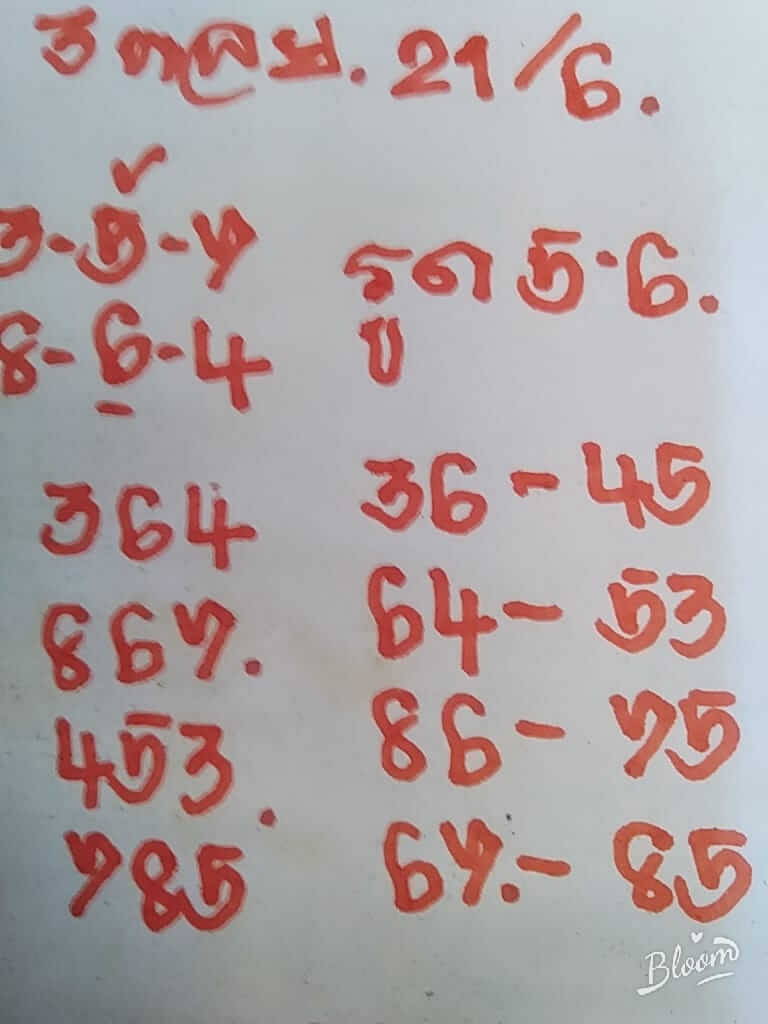 3 ตลาด. 21/6.
3-5-7 รูด 5-6.
8-6-4 บ
364 36-45
867. 64-53
453. 86-75
785 67.-85
Bloom